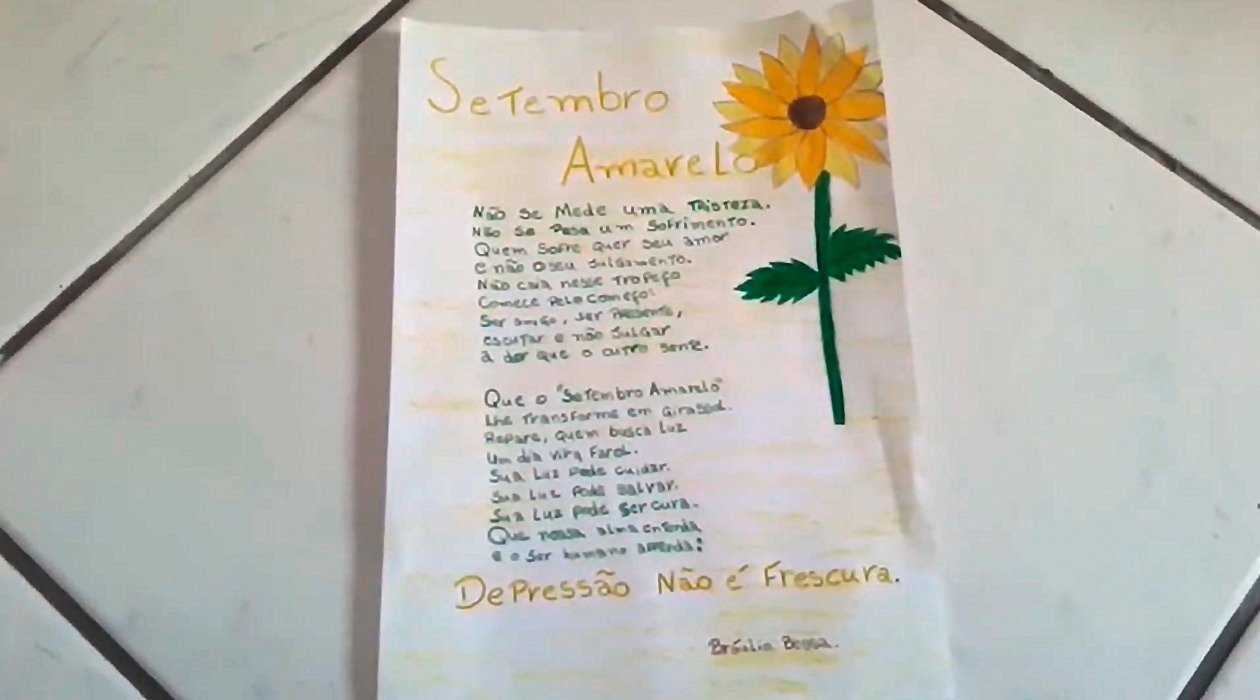 Setembro
Amarelo
Não se Mede uma Tristeza.
Não se Pesa um Sofrimento.
Quem Sofre quer seu amor
e não o seu Julgamento.
Não caia nesse Tropeço
Comece Pelo Começo:
Ser amigo, ser Presente,
escutar e não Julgar
a dor que o outro sente.
Que o "Setembro Amarelo"
Lhe Transforme em Girassol.
Repare, quem busca Luz
Um dia vira Farol.
Sua Luz Pode cuidar.
Sua Luz Pode salvar.
Sua Luz Pode ser cura.
Que nossa alma entenda
e o Ser humano aprenda:
Depressão Não é Frescura.
Bráulio Bessa.